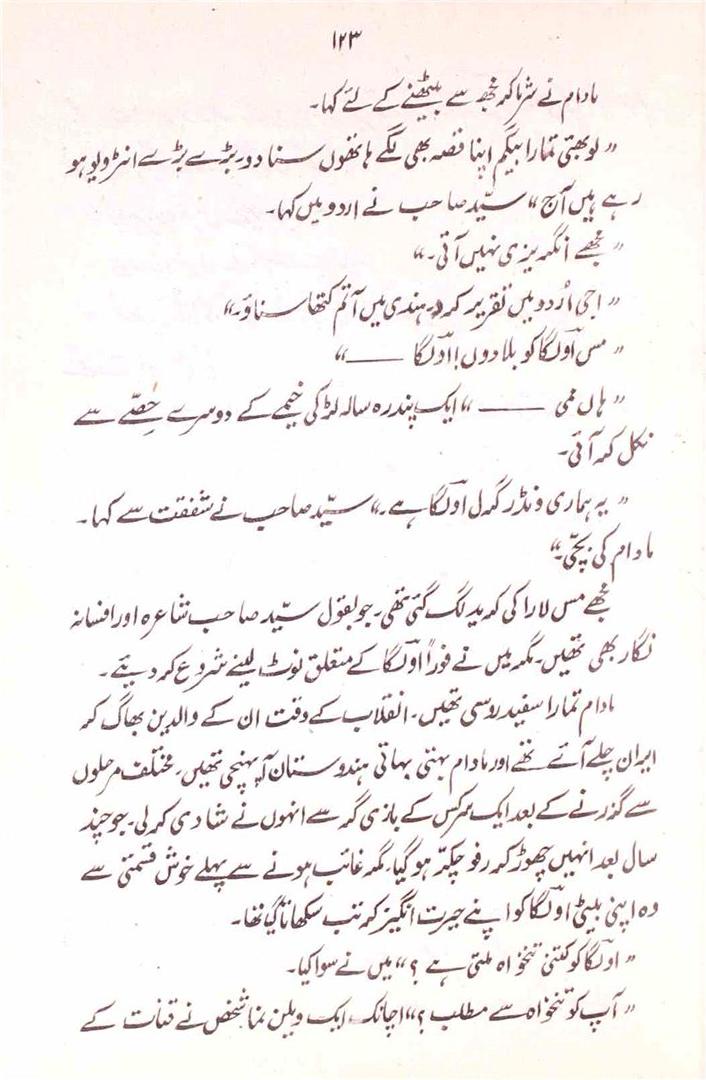 ۱۲۳
مادام نے شرما کر مجھ سے بیٹھنے کے لئے کہا۔
” لو بھئی تمارا بیگم اپنا قصہ بھی لگے ہاتھوں سنا دو۔ بڑے بڑے انٹرویو ہو
رہے ہیں آج “ سیّد صاحب نے اردو میں کہا۔
” مجھے انگریزی نہیں آتی۔“
” اجی اُردو میں تقریر کرو۔ ہندی میں آتم کتھا سناؤ۔“
” مس اولگا کو بلا دوں! اولگا ——— “
” ہاں ممی ——— “ ایک پندرہ سالہ لڑکی خیمے کے دوسرے حِصّے سے
نکل کر آئی۔
” یہ ہماری ونڈر گرل اولگا ہے۔“ سیّد صاحب نے شفقت سے کہا۔
مادام کی بچّی۔“
مجھے مس لارا کی کرید لگ گئی تھی۔ جو بقول سیّد صاحب شاعرہ اور افسانہ
نگار بھی تھیں۔ مگر میں نے فوراً اولگا کے متعلق نوٹ لینے شروع کر دیئے۔
مادام تمارا سفید روسی تھیں۔ انقلاب کے وقت ان کے والدین بھاگ کر
ایران چلے آئے تھے اور مادام بہتی بہاتی ہندوستان آ پہنچی تھیں۔ مختلف مرحلوں
سے گذرنے کے بعد ایک سرکس کے بازی گر سے انہوں نے شادی کر لی۔ جو چند
سال بعد انہیں چھوڑ کر رفو چکّر ہو گیا۔ مگر غائب ہونے سے پہلے خوش قسمتی سے
وہ اپنی بیٹی اولگا کو اپنے حیرت انگیز کرتب سکھاتا گیا تھا۔
” اولگا کو کتنی تنخواہ ملتی ہے ؟“ میں نے سوا کیا۔
” آپ کو تنخواہ سے مطلب ؟“ اچانک ایک ویلن نما شخص نے قنات کے